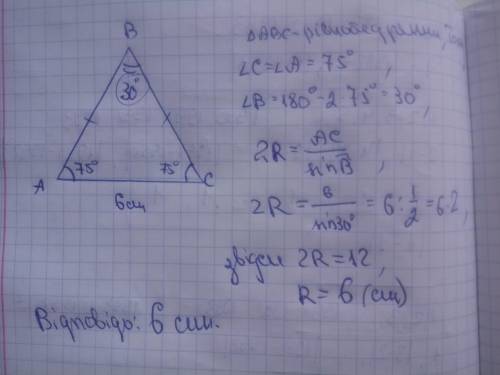 B
30°
A
75°
75°
C
6см
ΔABC - рівнобедрений,
∠C=∠A = 75°,
∠B=180°-2·75° = 30°,
2R = AC / sin B,
2R = 6 / sin30° = 6 : 1/2 = 6·2,
звідси 2R = 12,
R = 6 (см)
Відповідь: 6 см.